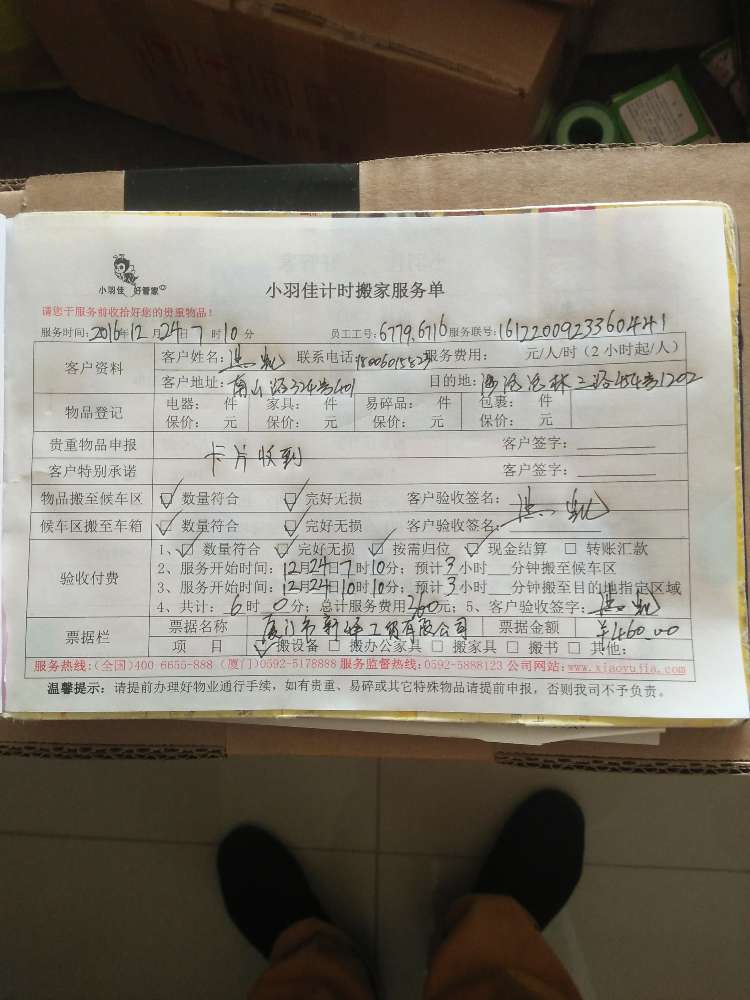 小羽佳 好管家
小羽佳计时搬家服务单
请您于服务前收拾好您的贵重物品!
服务时间:2016年12月24日7时10分 员工工号:6779,6716 服务联号:1612200923360441
客户资料 客户姓名: 联系电话: 服务费用: 元/人/时(2小时起/人)
客户地址: 目的地:
物品登记 电器: 件 家具: 件 易碎品: 件 包裹: 件
保价: 元 保价: 元 保价: 元 保价: 元
贵重物品申报 卡片收到 客户签字:
客户特别承诺 客户签字:
物品搬至候车区 数量符合 完好无损 客户验收签名:
候车区搬至车箱 数量符合 完好无损 客户验收签名:
验收付费 1、 数量符合 完好无损 按需归位 现金结算 转账汇款
2、服务开始时间:12月24日7时10分;预计3小时 分钟搬至候车区
3、服务开始时间:12月24日10时10分;预计3小时 分钟搬至目的地指定区域
4、共计:6时0分;总计服务费用260元;5、客户验收签字:
票据栏 票据名称 票据金额 ¥460.00
项 目 搬设备 搬办公家具 搬家具 搬书 其他:
服务热线:(全国)400 6655-888 (厦门)0592-5178888 服务监督热线:0592-5888123 公司网站:www.xiaoyujia.com
温馨提示:请提前办理好物业通行手续,如有贵重、易碎或其它特殊物品请提前申报,否则我司不予负责。